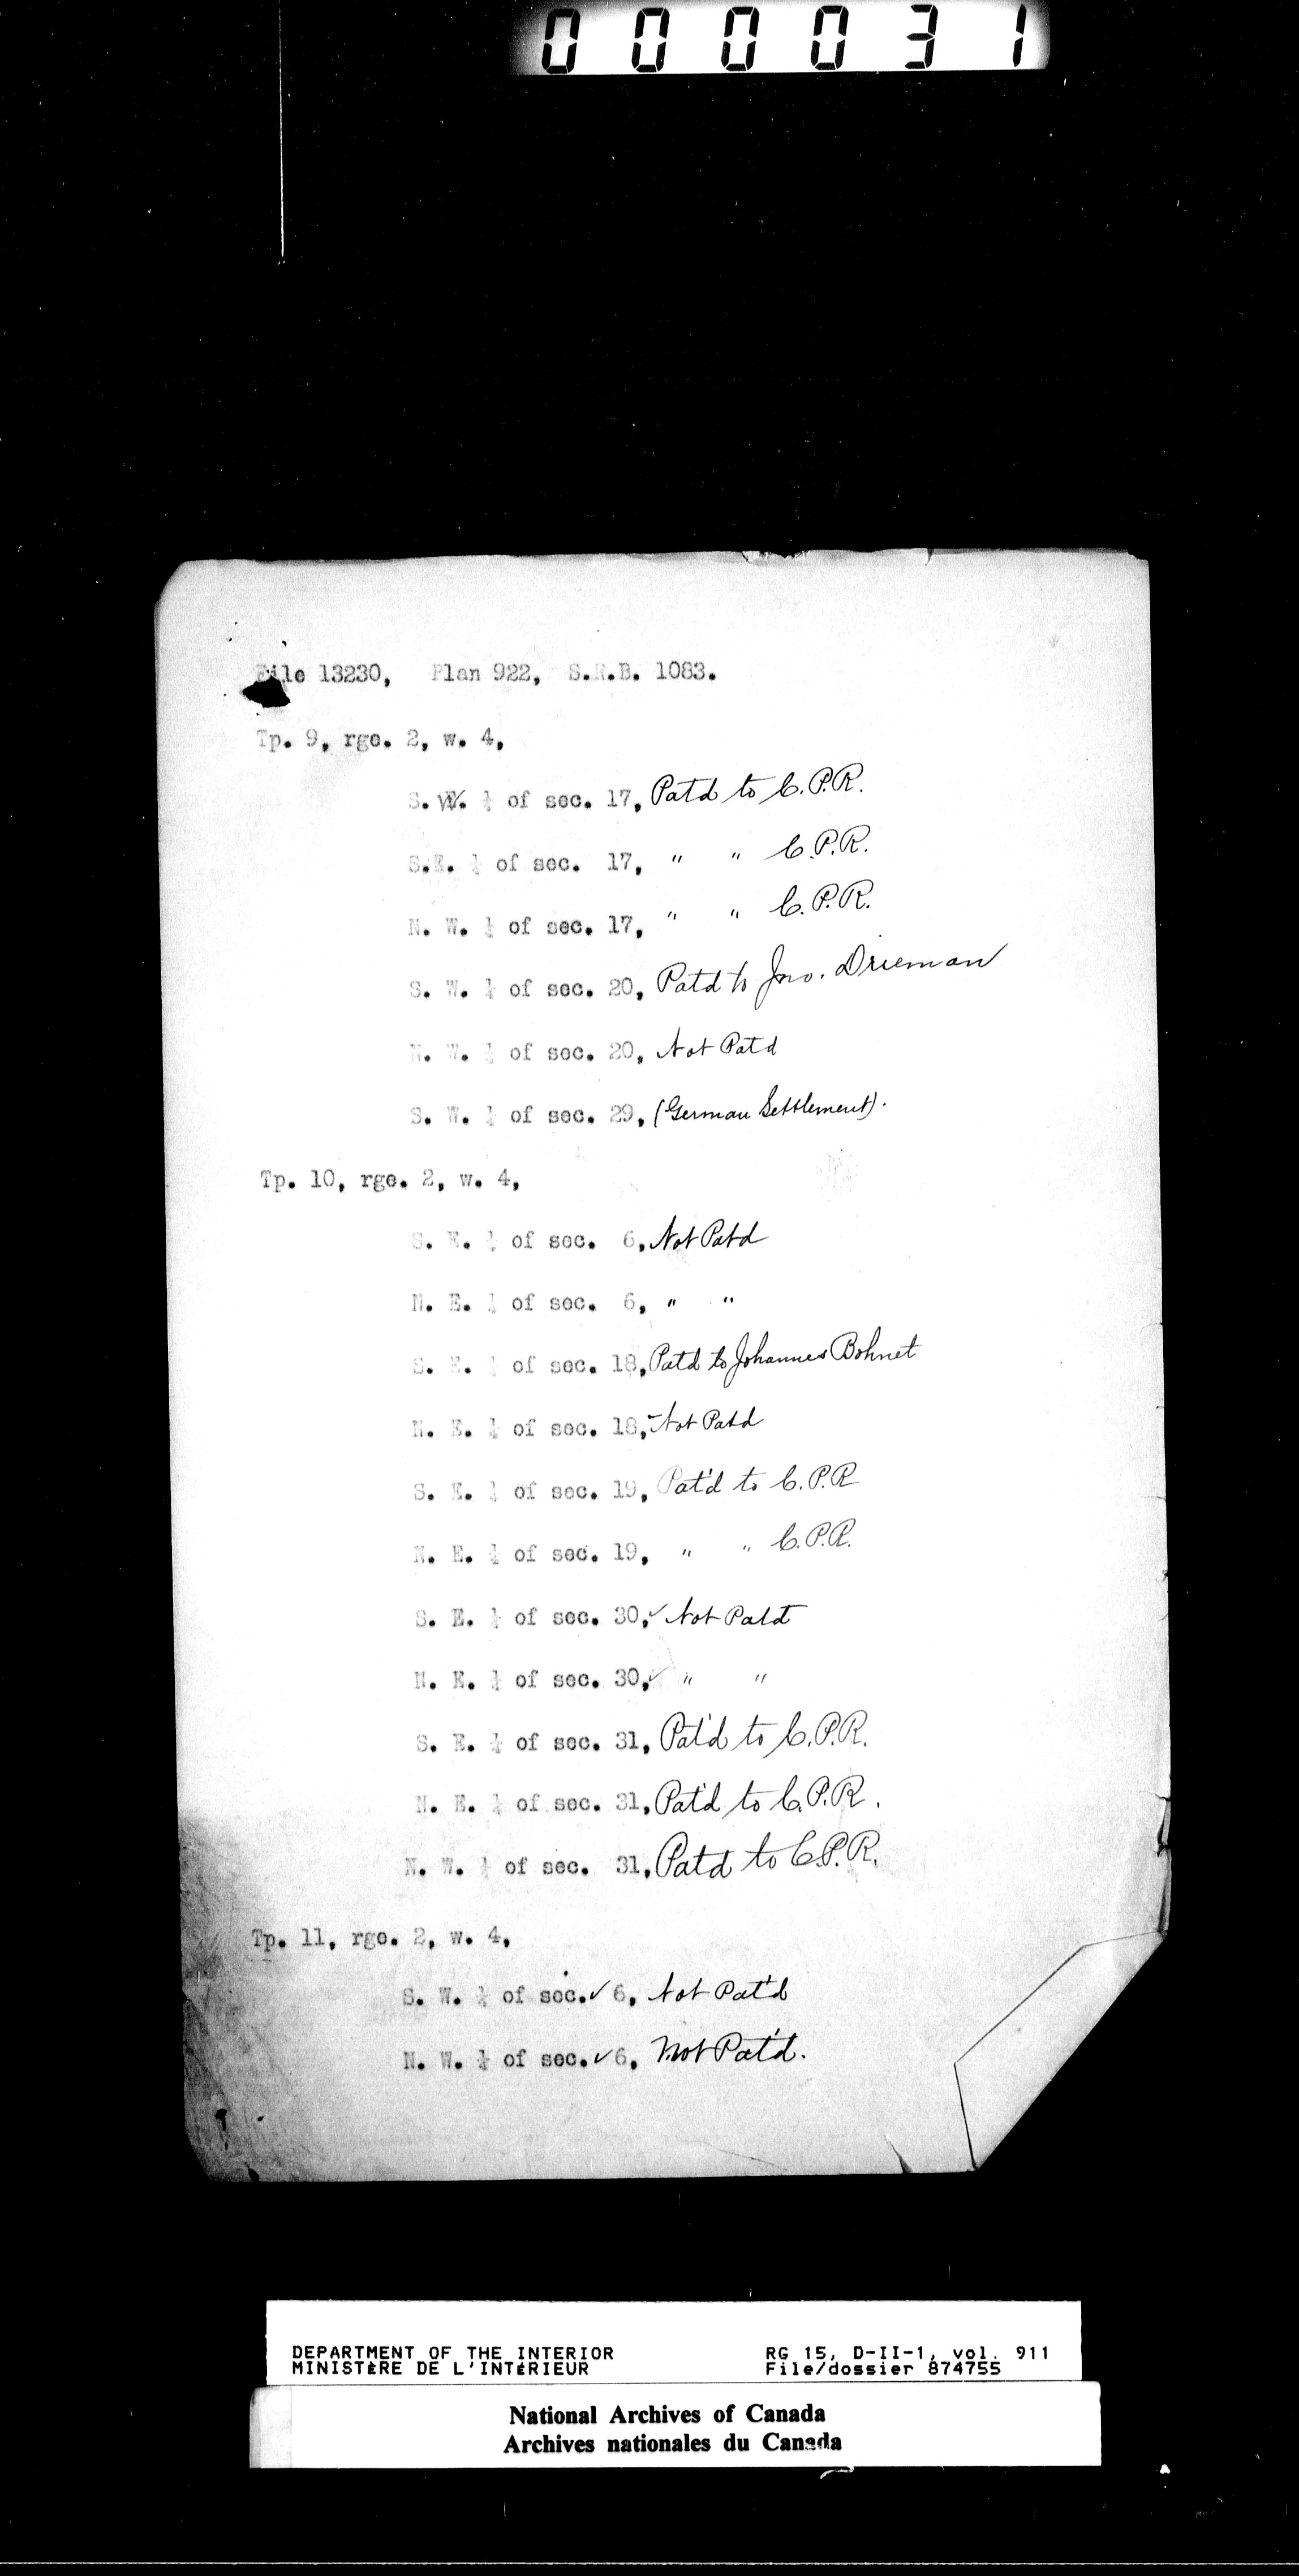 000031
File 13230, Plan 922, S.R.B. 1083.
Tp. 9, rge. 2, w. 4,
S. W. ¼ of sec. 17, Patd to C.P.R.
S.E. ¼ of sec. 17, " " C.P.R.
N. W. ¼ of sec. 17, " " C.P.R.
S. W. ¼ of sec. 20, Patd to Jno. Drieman
N. W. ¼ of sec. 20, Not Patd
S. W. ¼ of sec. 29, (German Settlement).
Tp. 10, rge. 2, w. 4,
S. E. ¼ of sec. 6, Not Patd
N. E. ¼ of sec. 6, " "
S. E. ¼ of sec. 18, Patd to Johannes Bohnet
N. E. ¼ of sec. 18, Not Patd
S. E. ¼ of sec. 19, Pat'd to C.P.R
N. E. ¼ of sec. 19, " " C.P.R.
S. E. ¼ of sec. 30, ✓ Not Patd
N. E. ¼ of sec. 30, ✓ " "
S. E. ¼ of sec. 31, Pat'd to C.P.R.
N. E. ¼ of sec. 31, Pat'd to C.P.R.
N. W. ¼ of sec. 31, Patd to C.P.R.
Tp. 11, rge. 2, w. 4,
S. W. ¼ of sec. ✓ 6, Not Pat'd
N. W. ¼ of sec. ✓ 6, Not Pat'd.
DEPARTMENT OF THE INTERIOR RG 15, D-II-1, vol. 911
MINISTÈRE DE L'INTÉRIEUR File/dossier 874755
National Archives of Canada
Archives nationales du Canada